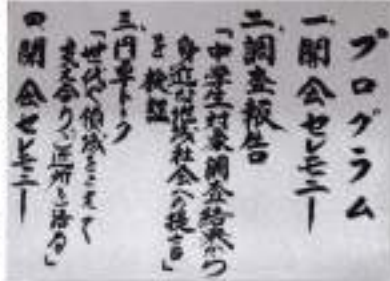 プログラム
一、開会セレモニー
二、調査報告
「中学生対象調査結果から
身近な地域社会への提言」
を検証
三、円卓トーク
「世代や領域をこえて
支え合う
四 閉会セレモニー